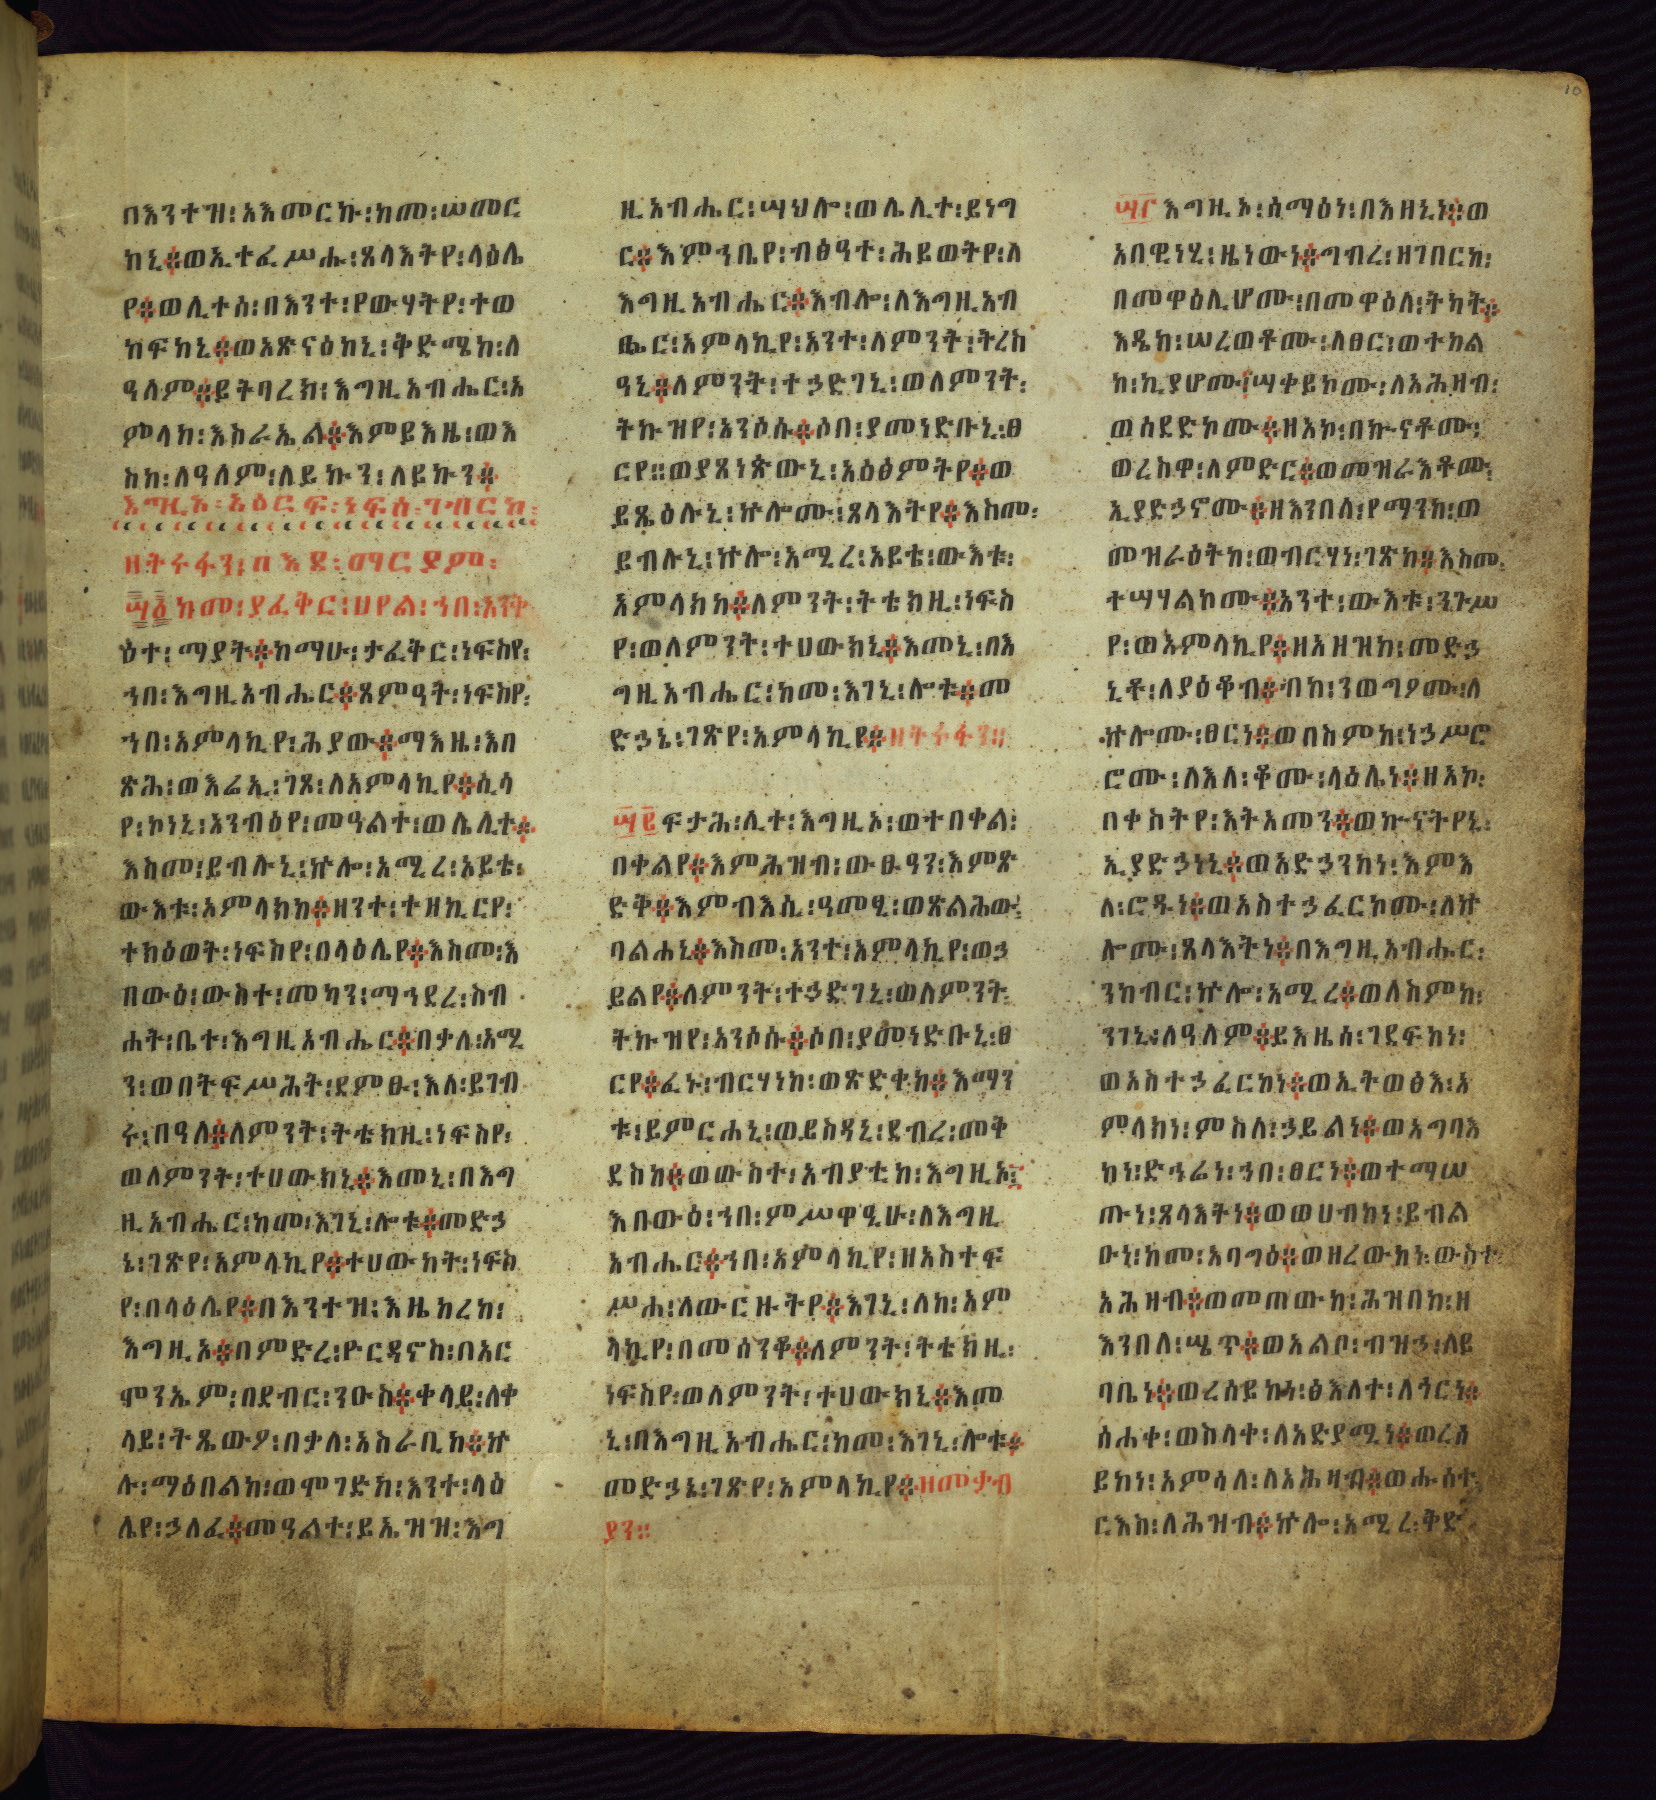 በእንተዝ፡አእመርኩ፡ከመ፡ሠመር
ከኒ፨ወኢተፈሥሑ፡ጸላእትየ፡ላዕሌ
የ፨ወሊተሰ፡በእንተ፡የውሃትየ፡ተወ
ከፍከኒ፨ወአጽናዕከኒ፡ቅድሜከ፡ለ
ዓለም፨ይትባረክ፡እግዚአብሔር፡አ
ምላከ፡እስራኤል፨እምይእዜ፡ወእ
ስከ፡ለዓለም፡ለይኩን፡ለይኩን፨
እግዚኦ፡አዕርፍ፡ነፍሰ፡ገብርከ፡
ዘትሩፋን፡በእደ፡ማርያም፡
፵፩ከመ፡ያፈቅር፡ሀየል፡ኀበ፡አንቅ
ዕተ፡ማያት፨ከማሁ፡ታፈቅር፡ነፍስየ፡
ኀበ፡እግዚአብሔር፨ጸምዓት፡ነፍስየ፡
ኀበ፡አምላኪየ፡ሕያው፨ማእዜ፡እበ
ጽሕ፡ወእሬኢ፡ገጸ፡ለአምላኪየ፨ሲሳ
የ፡ኮነኒ፡አንብዕየ፡መዓልተ፡ወሌሊተ፨
እስመ፡ይብሉኒ፡ኵሎ፡አሚረ፡አይቴ፡
ውእቱ፡አምላክከ፨ዘንተ፡ተዘኪርየ፡
ተክዕወት፡ነፍስየ፡በላዕሌየ፨እስመ፡እ
በውዕ፡ውስተ፡መካን፡ማኅደረ፡ስብ
ሐት፡ቤተ፡እግዚአብሔር፨በቃለ፡አሚ
ን፡ወበትፍሥሕት፡ደምፁ፡እለ፡ይገብ
ሩ፡በዓለ፨ለምንት፡ትቴክዚ፡ነፍስየ፡
ወለምንት፡ተሀውክኒ፨እመኒ፡በእግ
ዚአብሔር፡ከመ፡እገኒ፡ሎቱ፨መድኃ
ኔ፡ገጽየ፡አምላኪየ፨ተሀውከት፡ነፍስ
የ፡በላዕሌየ፨በእንተዝ፡እዜከረከ፡
እግዚኦ፨በምድረ፡ዮርዳኖስ፡በአር
ሞንኤም፡በደብር፡ንዑስ፨ቀላይ፡ለቀ
ላይ፡ትጼውዖ፡በቃለ፡አስራቢከ፨ኵ
ሉ፡ማዕበልከ፡ወሞገድከ፡እንተ፡ላዕ
ሌየ፡ኃለፈ፨መዓልተ፡ይኤዝዝ፡እግ
ዚአብሔር፡ሣህሎ፡ወሌሊተ፡ይነግ
ር፨እምኀቤየ፡ብፅዓተ፡ሕይወትየ፡ለ
እግዚአብሔር፨እብሎ፡ለእግዚአብ
ሔር፡አምላኪየ፡አንተ፡ለምንት፡ትረስ
ዓኒ፨ለምንት፡ተኃድገኒ፡ወለምንት፡
ትኩዝየ፡አንሶሱ፨ሶበ፡ያመነድቡኒ፡ፀ
ርየ፡፡ወያጸነጽውኒ፡አዕፅምትየ፨ወ
ይጼዕሉኒ፡ኵሎሙ፡ጸላእትየ፨እስመ፡
ይብሉኒ፡ኵሎ፡አሚረ፡አይቴ፡ውእቱ፡
አምላክከ፨ለምንት፡ትቴክዚ፡ነፍስ
የ፡ወለምንት፡ተሀውክኒ፨እመኒ፡በእ
ግዚአብሔር፡ከመ፡እገኒ፡ሎቱ፨መ
ድኃኔ፡ገጽየ፡አምላኪየ፨ዘትሩፋን፡፡
፵፪ፍታሕ፡ሊተ፡እግዚኦ፡ወተበቀል፡
በቀልየ፨እምሕዝብ፡ውፁዓን፡እምጽ
ድቅ፨እምብእሲ፡ዓመፂ፡ወጽልሕው፡
ባልሐኒ፨እስመ፡አንተ፡አምላኪየ፡ወኃ
ይልየ፨ለምንት፡ተኃድገኒ፡ወለምንት፡
ትኩዝየ፡አንሶሱ፨ሶበ፡ያመነድቡኒ፡ፀ
ርየ፨ፈኑ፡ብርሃነከ፡ወጽድቀከ፨እማን
ቱ፡ይምርሐኒ፡ወይስዳኒ፡ደብረ፡መቅ
ደስከ፨ወውስተ፡አብያቲከ፡እግዚኦ፡
እበውዕ፡ኀበ፡ምሥዋዒሁ፡ለእግዚ
አብሔር፨ኀበ፡አምላኪየ፡ዘአስተፍ
ሥሐ፡ለውርዙትየ፨እገኒ፡ለከ፡አም
ላኪየ፡በመሰንቆ፨ለምንት፡ትቴክዚ፡
ነፍስየ፡ወለምንት፡ተሀውክኒ፨እመ
ኒ፡በእግዚአብሔር፡ከመ፡እገኒ፡ሎቱ፨
መድኃኔ፡ገጽየ፡አምላኪየ፨ዘመቃብ
ያን፡፡
፵፫እግዚኦ፡ሰማዕነ፡በእዘኒነ፨ወ
አበዊነሂ፡ዜነውነ፨ግብረ፡ዘገበርከ፡
በመዋዕሊሆሙ፡በመዋዕለ፡ትካት፨
እዴከ፡ሠረወቶሙ፡ለፀር፡ወተከል
ከ፡ኪያሆሙ፡ሣቀይኮሙ፡ለአሕዛብ፡
ወሰደድኮሙ፨ዘአኮ፡በኲናቶሙ፡
ወረስዋ፡ለምድር፨ወመዝራእቶሙ፡
ኢያድኃኖሙ፨ዘእንበለ፡የማንከ፡ወ
መዝራዕትከ፡ወብርሃነ፡ገጽከ፨እስመ፡
ተሣሃልኮሙ፨አንተ፡ውእቱ፡ንጉሥ
የ፡ወአምላኪየ፨ዘአዘዝከ፡መድኃ
ኒቶ፡ለያዕቆብ፨ብከ፡ንወግዖሙ፡ለ
ኵሎሙ፡ፀርነ፨ወበስምከ፡ነኃሥሮ
ሮሙ፡ለእለ፡ቆሙ፡ላዕሌነ፨ዘአኮ፡
በቀስትየ፡እትአመን፨ወኲናትየኒ፡
ኢያድኃነኒ፨ወአድኃንከነ፡እምእ
ለ፡ሮዱነ፨ወአስተኃፈርኮሙ፡ለኵ
ሎሙ፡ጸላእትነ፨በእግዚአብሔር፡
ንከብር፡ኵሎ፡አሚረ፨ወለስምከ፡
ንገኒ፡ለዓለም፨ይእዜሰ፡ገደፍከነ፡
ወአስተኃፈርከነ፨ወኢትወፅእ፡አ
ምላክነ፡ምስለ፡ኃይልነ፨ወአግባእ
ከነ፡ድኅሬነ፡ኀበ፡ፀርነ፨ወተማሠ
ጡነ፡ጸላእትነ፨ወወሀብከነ፡ይብል
ዑነ፡ከመ፡አባግዕ፨ወዘረውከነ፡ውስተ፡
አሕዛብ፨ወመጠውከ፡ሕዝበከ፡ዘ
እንበለ፡ሤጥ፨ወአልቦ፡ብዝኃ፡ለይ
ባቤነ፨ወረሰይከነ፡ፅእለተ፡ለጎርነ፨
ሰሐቀ፡ወስላቀ፡ለአድያሚነ፨ወረሰ
ይከነ፡አምሳለ፡ለአሕዛብ፨ወሑሰተ
ርእስ፡ለሕዝብ፨ኵሎ፡አሚረ፡ቅድ